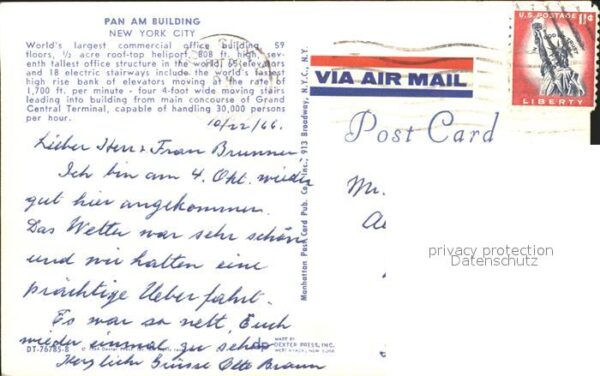 PAN AM BUILDING
NEW YORK CITY
World's largest commercial office building, 59
floors, ½ acre roof-top heliport, 808 ft. high, sev-
enth tallest office structure in the world, 65 elevators
and 18 electric stairways include the world's fastest
high rise bank of elevators moving at the rate of
1,700 ft. per minute - four 4-foot wide moving stairs
leading into building from main concourse of Grand
Central Terminal, capable of handling 30,000 persons
per hour.
10/22/66.
Lieber Herr & Frau Brunner
Ich bin am 4. Okt. wieder
gut hier angekommen.
Das Wetter war sehr schön
und wir hatten eine
prächtige Ueberfahrt.
Es war so nett, Euch
wieder einmal zu sehen
Herzliche Grüsse Otto Braun
DT-76785-B
MADE BY
dp DEXTER PRESS, INC.
WEST NYACK, NEW YORK
Manhattan Post Card Pub. Co., Inc., 913 Broadway, N.Y.C., N.Y.
VIA AIR MAIL
U.S. POSTAGE 11¢
LIBERTY
Post Card
Mr.
privacy protection
Datenschutz